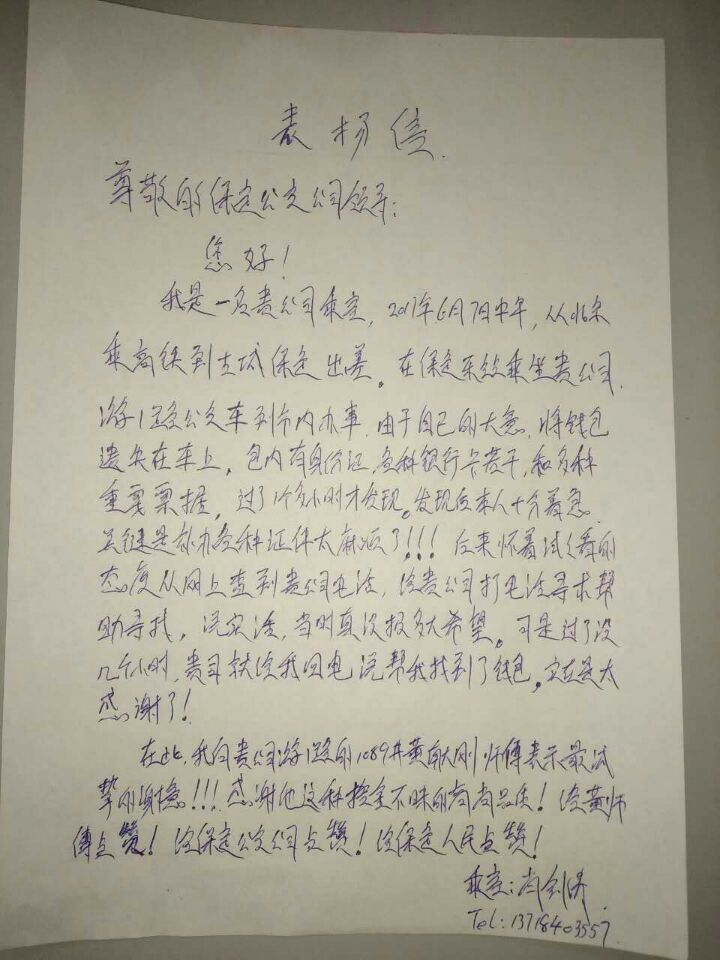 表扬信
尊敬的保定公交公司领导:
您好!
我是一名贵公司乘客,2017年6月7日中午,从北京
乘高铁到古城保定出差。在保定东站乘坐贵公司
游1路公交车到市内办事.由于自己的大意,将钱包
遗失在车上,包内有身份证,各种银行卡若干,和多种
重要票据,过了1个多小时才发现。发现后本人十分着急。
关键是补办各种证件太麻烦了!!!后来怀着试试看的
态度从网上查到贵公司电话,给贵公司打电话寻求帮
助寻找,说实话,当时真没报多大希望。可是过了没
几个小时,贵司就给我回电说帮我找到了钱包。实在是太
感谢了!
在此,我向贵公司游1路的1089井黄献刚师傅表示最诚
挚的谢意!!!感谢他这种拾金不昧的高尚品质!给黄师
傅点赞!给保定公交公司点赞!给保定人民点赞!
乘客:肖剑
Tel:13718403557